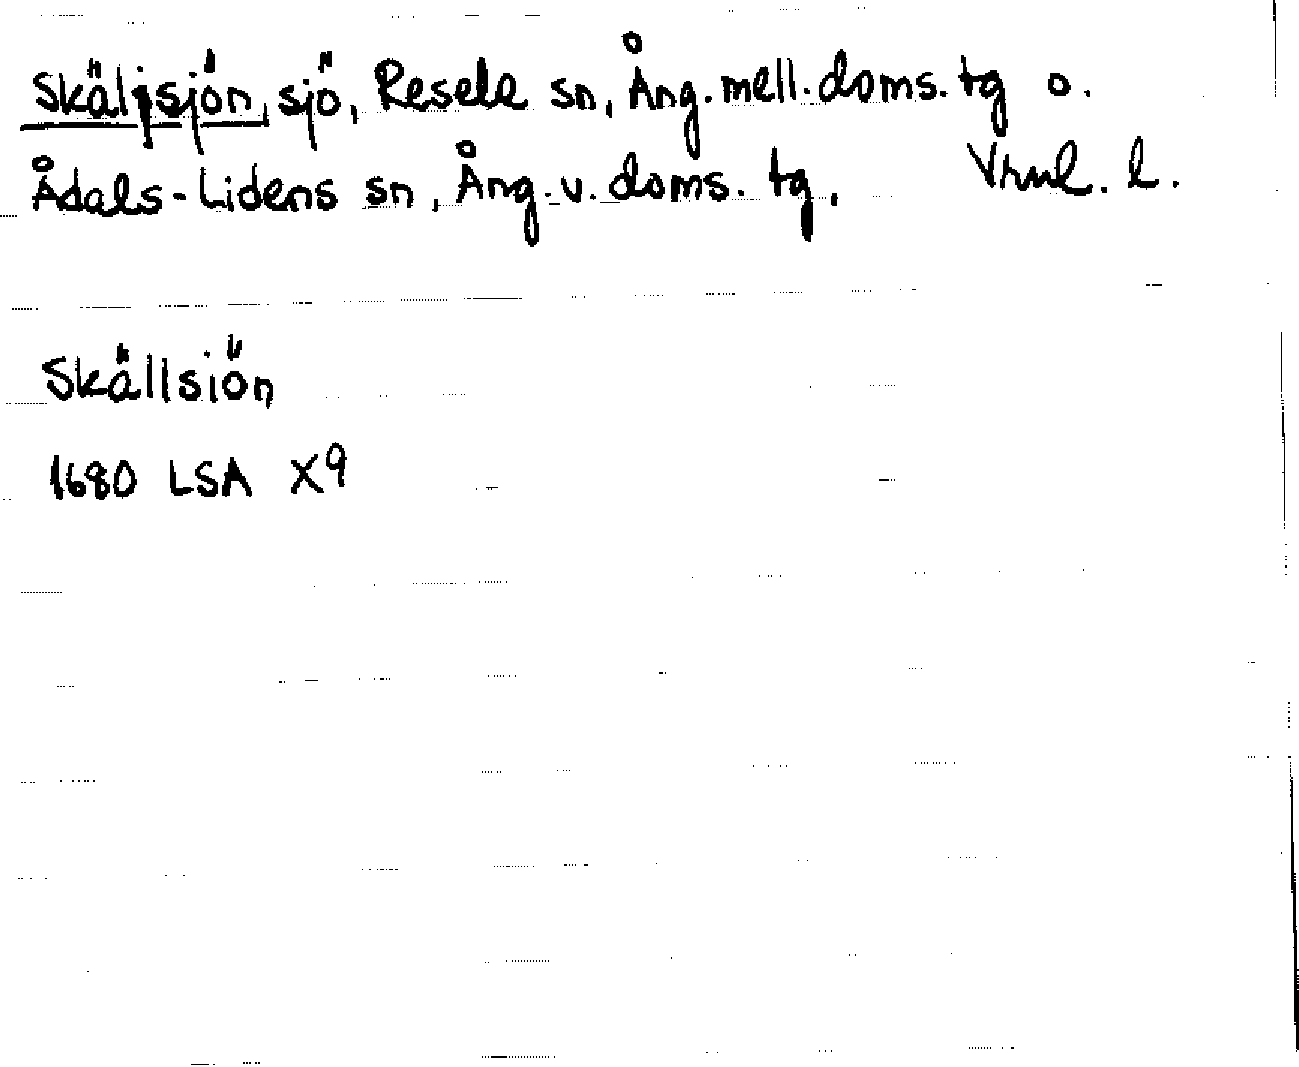 Skäljsjön, sjö, Resele sn, Ång. mell. doms. tg o.
Ådals-Lidens sn, Ång. v. doms. tg. Vrnl. l.
Skällsiön
1680 LSA X9